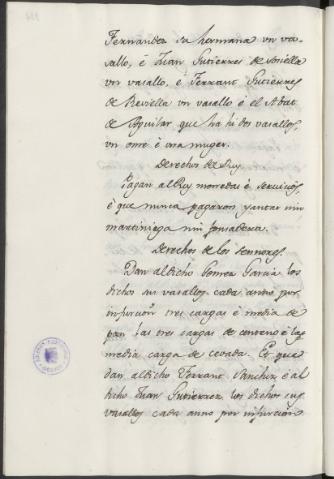 Fernandez sa hermana vn va-
sallo, é Juan Gutierres de
vn vasallo, é Ferrant Gutierres
de Reviella vn vasallo é el Abat
de Aguilar, que ha hi dos vasallos,
vn ome é vna muger.
Derechos del Rey.
Pagan al Rey monedas é servicios
é que nunca pagaron yantar nin
martiniega nin fonsadera.
Derechos de los sennores.
Dan al dicho Gomez Garcia los
dichos sus vasallos cada anno por
infurcion tres cargas é media de
pan las tres cargas de centeno é la
media carga de cevada. Et que
dan al dicho Ferrant Sanchez é al
dicho Juan Gutierrez los dichos sus
vasallos cada anno por infurcion